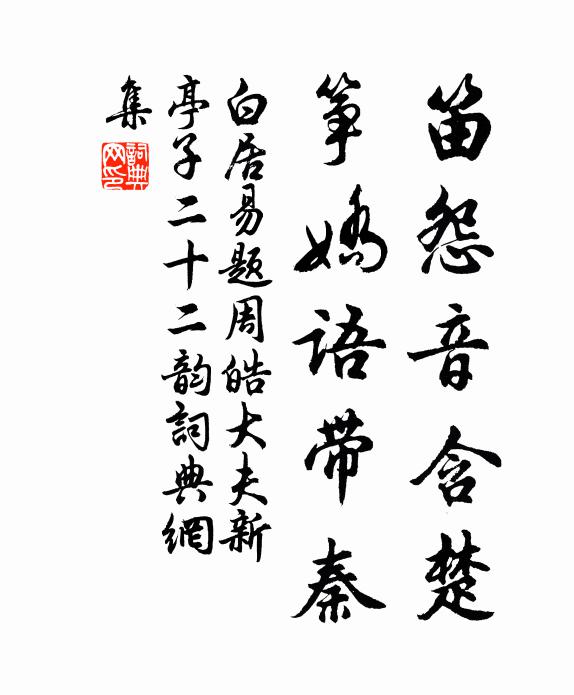 笛怨音含楚
筝嬌語带秦
白居易题周皓大夫新
亭子二十二韵詞典網
集
詞典
网印